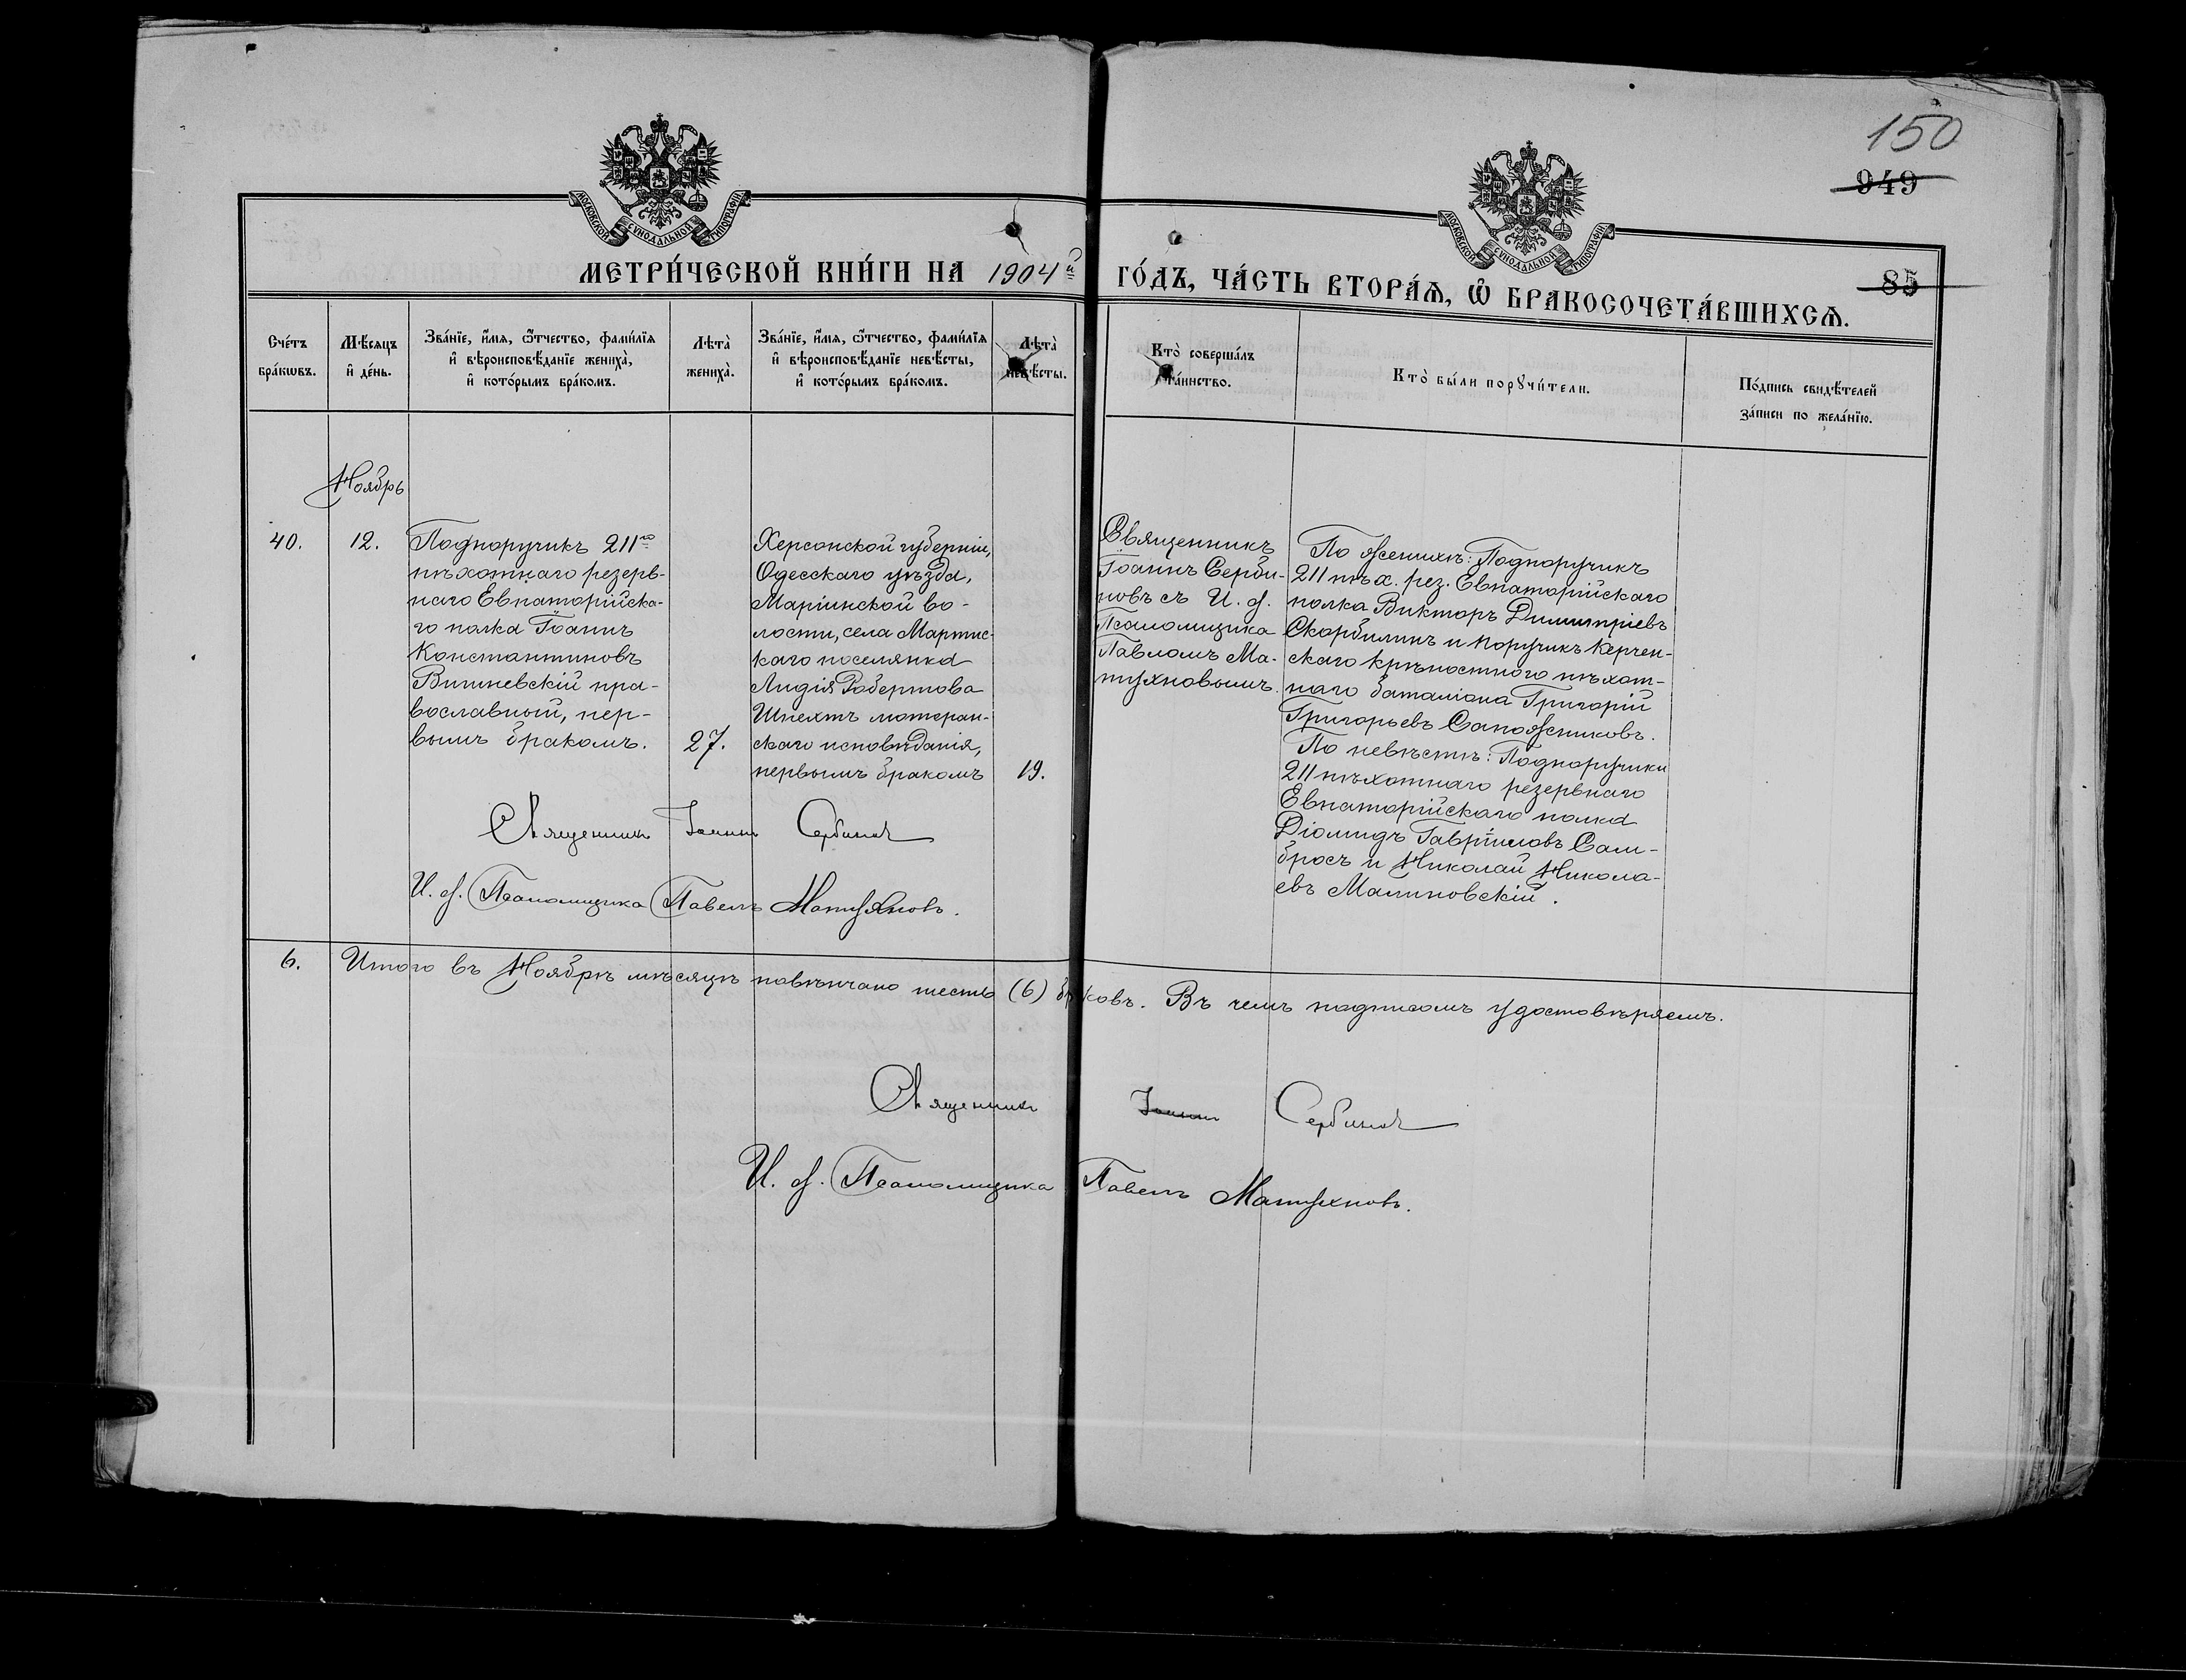 150
949
85
МОСКОВСКОЙ СѴНОДАЛЬНОЙ ТИПОГРАФІИ
МОСКОВСКОЙ СѴНОДАЛЬНОЙ ТИПОГРАФІИ
МЕТРИ́ЧЕСКОЙ КНИ́ГИ НА 1904й ГО́ДЪ, ЧА́СТЬ ВТОРА́Ѧ, Ѡ БРАКОСОЧЕТА́ВШИХСѦ.
Сче́тъ
бра́кѡвъ.
Мѣ́сѧцъ
и҆ де́нь.
Зва́нїе, и҆́мѧ, ѻ҆́тчество, фами́лїѧ
и҆ вѣроисповѣ́данїе жениха̀,
и҆ кото́рымъ бра́комъ.
Лѣта̀
жениха̀.
Зва́нїе, и҆́мѧ, ѻ҆́тчество, фами́лїѧ
и҆ вѣроисповѣ́данїе невѣ́сты,
и҆ кото́рымъ бра́комъ.
Лѣта̀
невѣ́сты.
Кто̀ соверша́лъ
та́инство.
Кто̀ бы́ли порꙋчи́тели.
По́дпись свидѣ́телей
за́писи по жела́нїю.
Ноябрь
40.
12.
Подпоручикъ 211го
пѣхотнаго резерв-
наго Евпаторійска-
го полка Іоаннъ
Константиновъ
Вишневскій пра-
вославный, пер-
вымъ бракомъ.
27.
Херсонской губерніи,
Одесскаго уѣзда,
Маріинской во-
лости, села Мартис-
каго поселянка
Лидія Робертова
Шпехтъ лютеран-
скаго исповѣданія,
первымъ бракомъ
19.
Священникъ
Іоаннъ Серби-
новъ съ И. д.
Псаломщика
Павломъ Ма-
тухновымъ.
По женихѣ: Подпоручикъ
211 пѣх. рез. Евпаторійскаго
полка Викторъ Димитріевъ
Скорбилинъ и поручикъ Керчен-
скаго крѣпостного пѣхот-
наго баталіона Григорій
Григорьевъ Сапожниковъ.
По невѣстѣ: Подпоручики
211 пѣхотнаго резервнаго
Евпаторійскаго полка
Діомидъ Гавріиловъ Сам-
бросъ и Николай Никола-
евъ Малиновскій.
Священникъ Іоаннъ Сербиновъ
И. д. Псаломщика Павелъ Матухновъ.
6. Итого въ Ноябрѣ мѣсяцѣ повѣнчано шесть (6) браковъ. Въ чемъ подписомъ удостовѣряемъ.
Священникъ Іоаннъ Сербиновъ
И. д. Псаломщика Павелъ Матухновъ.